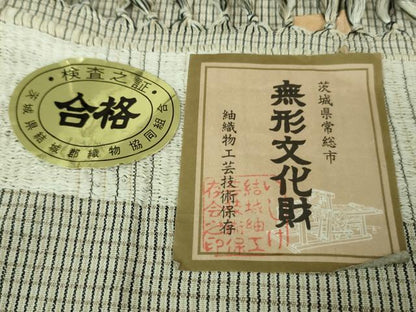 検査之証
合格
茨城県結城郡織物協同組合
茨城県常総市
無形文化財
紬織物工芸技術保存